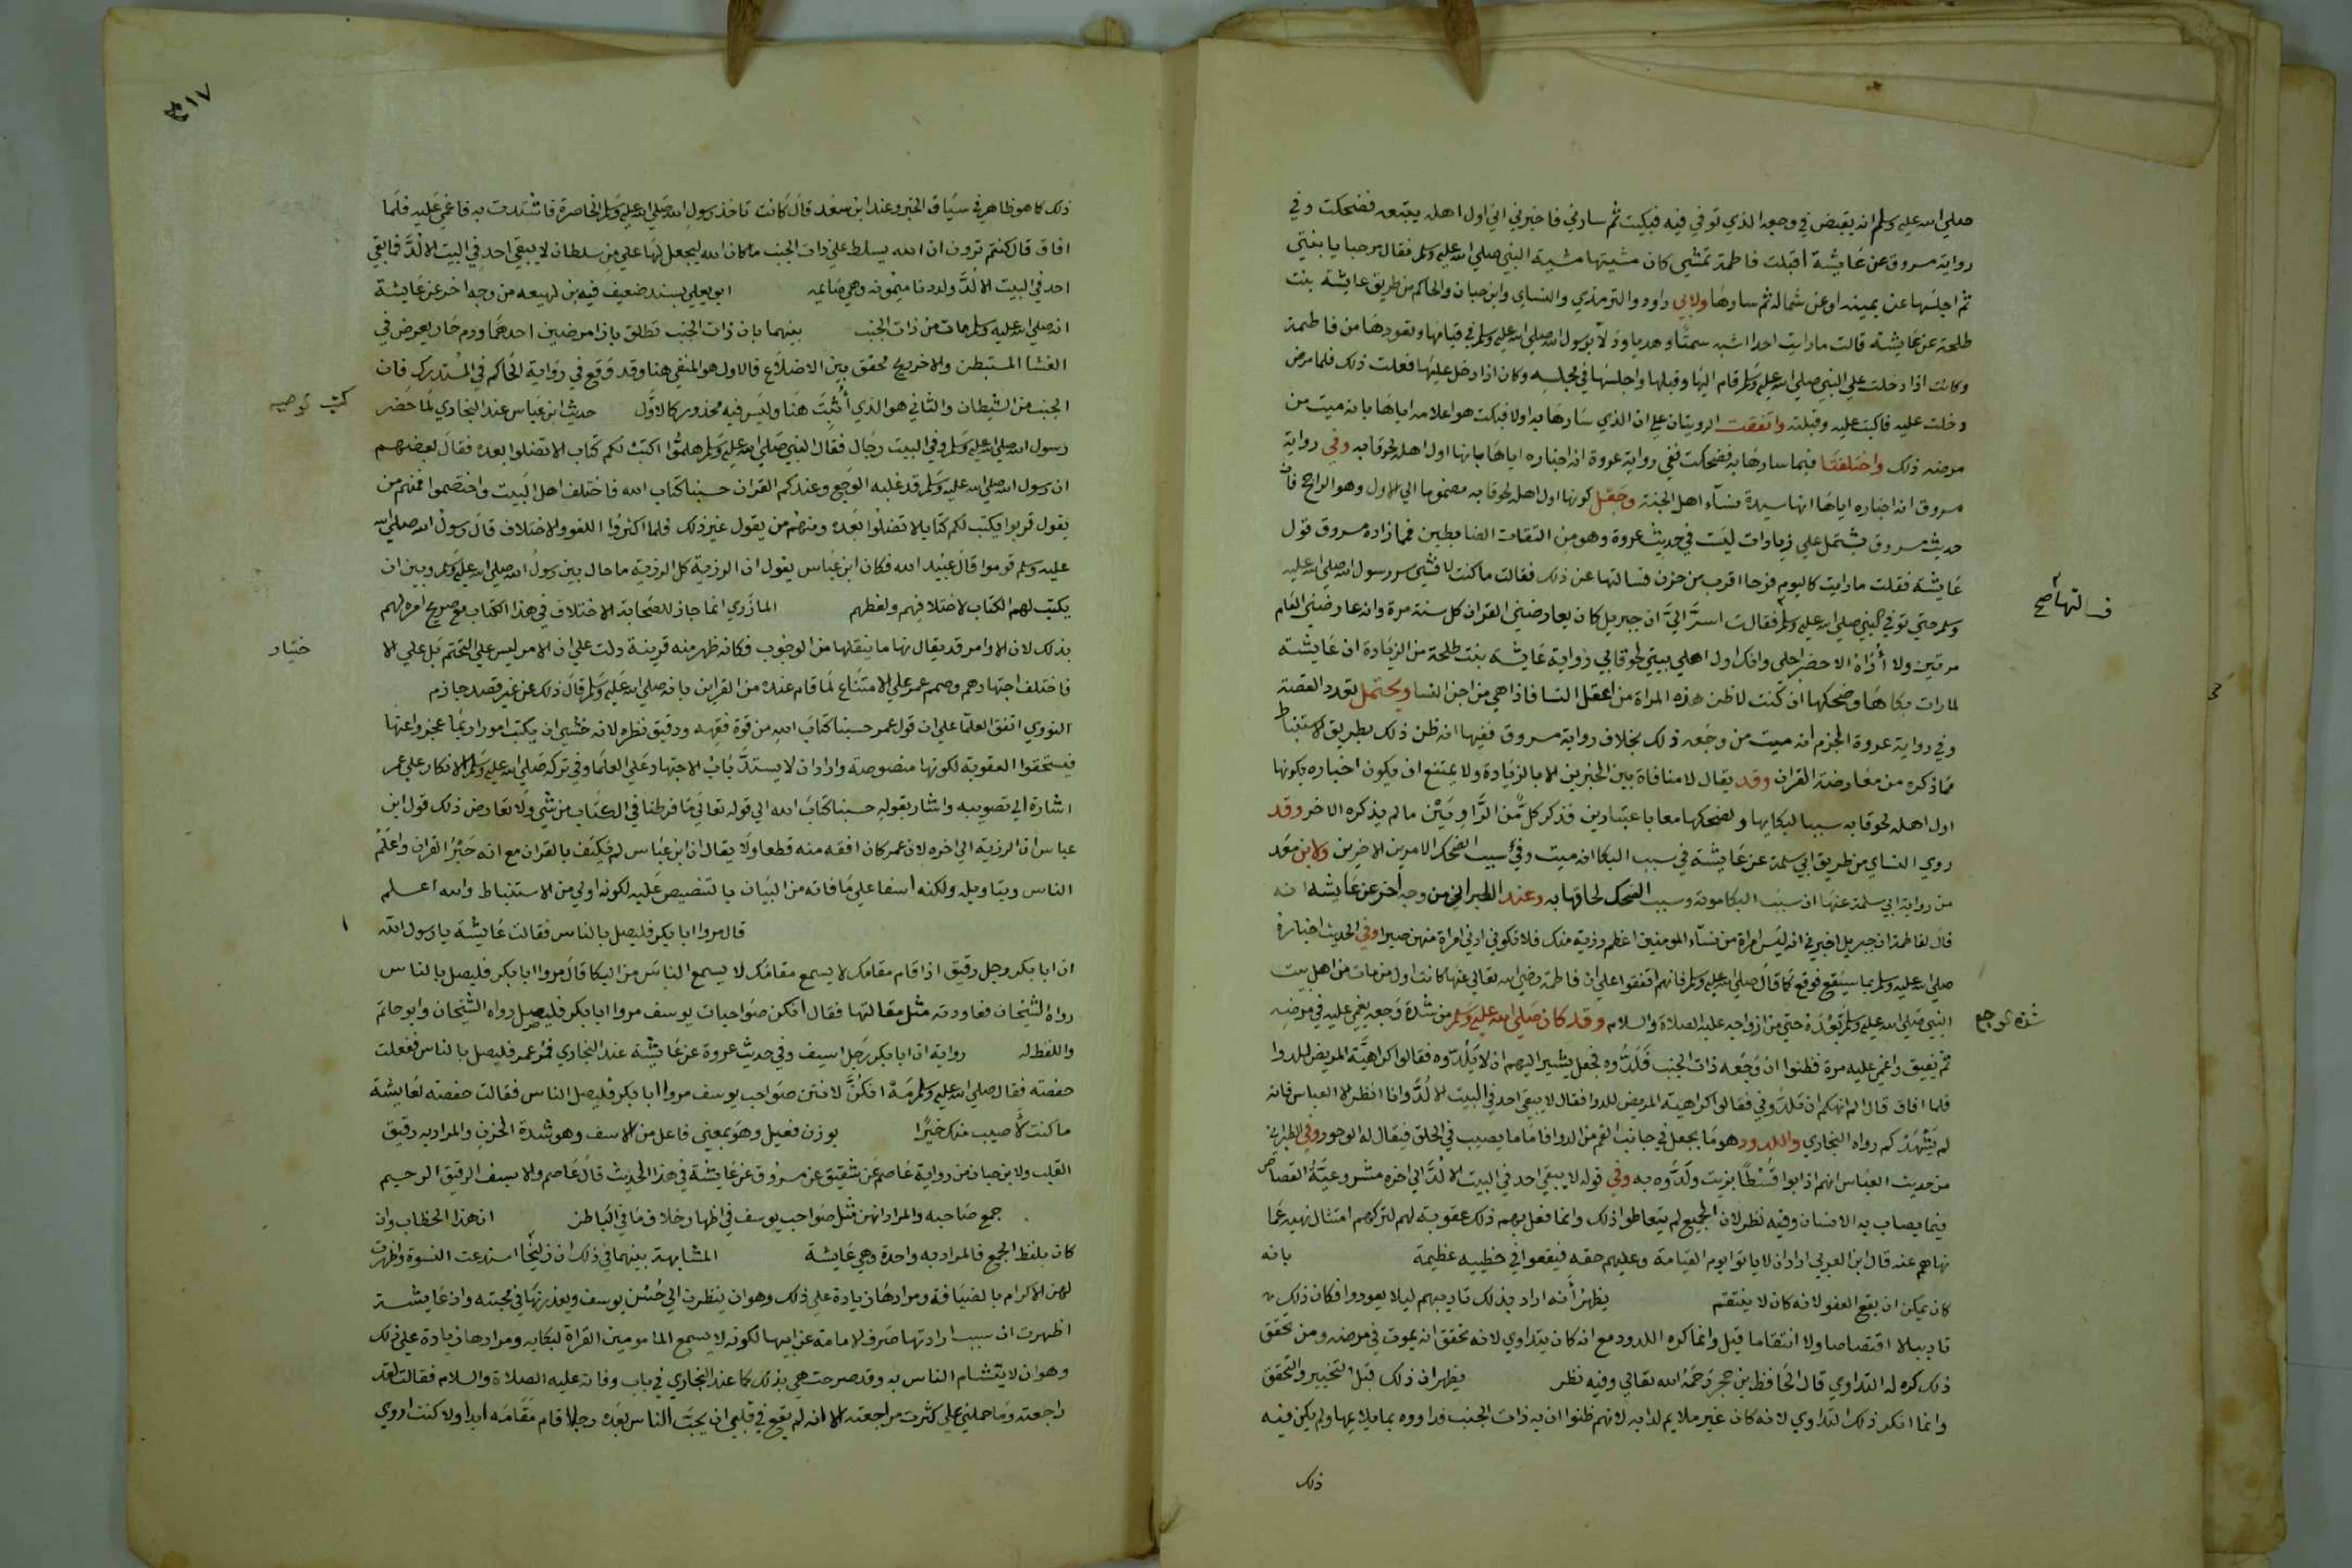 صلي الله عليه وسلم انه يقبض في وجعه الذي توفي فيه فبكيت ثم سارني فاخبرني اني اول اهله يتبعه فضحكت وفي
رواية مسروق عن عايشة أقبلت فاطمة تمشي كان مشيتها مشية النبي صلي الله عليه وسلم فقال مرحبا يا بنتي
ثم اجلسها عن يمينه او عن شماله ثم سارها ولابي داود والترمذي والنساي وابن حبان والحاكم من طريق عايشة بنت
طلحة عن عايشة قالت ما رايت احدا اشبه سمتا وهديا ودلا برسول الله صلي الله عليه وسلم في قيامها وقعودها من فاطمة
وكانت اذا دخلت علي النبي صلي الله عليه وسلم قام اليها وقبلها واجلسها في مجلسه وكان اذا دخل عليها فعلت ذلك فلما مرض
دخلت عليه فاكبت عليه وقبلته واتفقت الرويتان علي ان الذي سارها به اولا فبكت هو اعلامه اياها بانه ميت من
مرضه ذلك واختلفتا فيما سارها به فضحكت ففي رواية عروة انه اخباره اياها بانها اول اهله لحوقا به وفي رواية
مسروق انه اخباره اياها انها سيدة نساء اهل الجنة وجعل كونها اول اهله لحوقا به مضموما الي الاول وهو الراجح فان
حديث مسروق يشتمل علي زيادات ليست في حديث عروة وهو من الثقات الضابطين فمما زاده مسروق قول
عايشة فقلت ما رايت كاليوم فرحا اقرب من حزن فسالتها عن ذلك فقالت ما كنت لافشي سر رسول الله صلي الله عليه
وسلم حتي توفي النبي صلي الله عليه وسلم فقالت اسر الي ان جبريل كان يعارضني القران كل سنة مرة وانه عارضني العام
فسالتها صح
مرتين ولا أراه الا حضر اجلي وانك اول اهلي بيتي لحوقا بي رواية عايشة بنت طلحة من الزيادة ان عايشة
لما رات بكاها وضحكها ان كنت لاظن هذه المراة من اعقل النسا فاذا هي من اجن النسا ويحتمل تعدد القصة
وفي رواية عروة الجزم انه ميت من وجعه ذلك بخلاف رواية مسروق ففيها انه ظن ذلك بطريق الاستنباط
مما ذكره من معارضة القران وقد يقال لا منافاة بين الخبرين الا بالزيادة ولا يمتنع ان يكون اخباره بكونها
اول اهله لحوقا به سببا لبكايها ولضحكها معا باعتبارين فذكر كل من الراويين ما لم يذكره الاخر وقد
روي النساي من طريق ابي سلمة عن عايشة في سبب البكا انه ميت وفي سبب الضحك الامرين الاخرين ولابن سعد
من رواية ابي سلمة عنها ان سبب البكا موته وسبب الضحك لحاقها به وعند الطبراني من وجه أخر عن عايشة انه
قال لفاطمة ان جبريل اخبرني انه ليس امراة من نساء المومنين اعظم رزية منك فلا تكوني ادني امراة منهن صبرا وفي الحديث اخباره
صلي الله عليه وسلم بما سيقع فوقع كما قال صلي الله عليه وسلم فانهم اتفقوا علي ان فاطمة رضي الله تعالي عنها كانت اول من مات من اهل بيت
النبي صلي الله عليه وسلم بعده حتي من ازواجه عليه الصلاة والسلام وقد كان صلي الله عليه وسلم من شدة وجعه يغمي عليه في مرضه
شدة توجع
ثم يفيق واغمي عليه مرة فظنوا ان وجعه ذات الجنب فلدوه فجعل يشير اليهم ان لا يلدوه فقالوا كراهية المريض للدوا
فلما افاق قال الم انهكم ان تلدوني فقالوا كراهية المريض للدوا فقال لا يبقي احد في البيت الا لد وانا انظر الا العباس فانه
لم يشهدكم رواه البخاري واللدود هو ما يجعل في جانب الفم من الدوا فاما ما يصب في الحلق فيقال له الوجور وفي الطبراني
من حديث العباس انهم اذابوا قسطا بزيت ولدوه به وفي قوله لا يبقي احد في البيت الا لد الي اخره مشروعية القصاص
فيما يصاب به الانسان وفيه نظر لان الجميع لم يتعاطوا ذلك وانما فعل بهم ذلك عقوبة لهم لتركهم امتثال نهيه عما
نهاهم عنه قال ابن العربي اراد ان لا ياتوا يوم القيامة وعليهم حقه فيقعوا في خطيبه عظيمة بانه
كان يمكن ان يقع العفو لانه كان لا ينتقم يظهر أنه اراد بذلك تاديبهم ليلا يعودوا فكان ذلك
تاديبا لا اقتصاصا ولا انتقاما قيل وانما كره اللدود مع انه كان يتداوي لانه تحقق انه يموت في مرضه ومن تحقق
ذلك كره له التداوي قال الحافظ بن حجر رحمه الله تعالي وفيه نظر يظهر ان ذلك قبل التخيير والتحقق
وانما انكر ذلك التداوي لانه كان غير ملايم لدايه لانهم ظنوا ان به ذات الجنب فداووه بما يلايمها ولم يكن فيه
ذلك
٤١٧
ذلك كما هو ظاهر في سياق الخبر وعند ابن سعد قال كانت تاخذ رسول الله صلي الله عليه وسلم الخاصرة فاشتدت به فاغمي عليه فلما
افاق قال كنتم ترون ان الله يسلط علي ذات الجنب ما كان الله ليجعل لها علي من سلطان لا يبقي احد في البيت الا لد فما بقي
احد في البيت الا لد ولددنا ميمونة وهي صايمه ابو يعلي بسند ضعيف فيه بن لهيعه من وجه اخر عن عايشة
انه صلي الله عليه وسلم مات من ذات الجنب بينهما بان ذات الجنب تطلق بازا مرضين احدهما ورم حار يعرض في
الغشا المستبطن والاخر ريح محتقن بين الاضلاع فالاول هو المنفي هنا وقد وقع في رواية الحاكم في المستدرك فان
الجنب من الشيطان والثاني هو الذي أثبت هنا وليس فيه محذور كالاول حديث ابن عباس عند البخاري لما حضر
كتب توصيه
رسول الله صلي الله عليه وسلم وفي البيت رجال فقال النبي صلي الله عليه وسلم هلموا اكتب لكم كتاب لا تضلوا بعده فقال بعضهم
ان رسول الله صلي الله عليه وسلم قد غلبه الوجع وعندكم القران حسبنا كتاب الله فاختلف اهل البيت واختصموا فمنهم من
يقول قربوا يكتب لكم كتابا لا تضلوا بعده ومنهم من يقول غير ذلك فلما اكثروا اللغو والاختلاف قال رسول الله صلي الله
عليه وسلم قوموا قال عبيد الله فكان ابن عباس يقول ان الرزية كل الرزية ما حال بين رسول الله صلي الله عليه وسلم وبين ان
يكتب لهم الكتاب لاختلافهم ولغطهم المازري انما جاز للصحابة الاختلاف في هذا الكتاب مع صريح امره لهم
بذلك لان الاوامر قد يقال نها ما ينقلها من الوجوب فكانه ظهر منه قرينة دلت علي ان الامر ليس علي التحتم بل علي الا
ختيار
فاختلف اجتهادهم وصمم عمر علي الامتناع لما قام عنده من القراين بانه صلي الله عليه وسلم قال ذلك عن غير قصد جازم
النووي اتفق العلما علي ان قول عمر حسبنا كتاب الله من قوة فقهه ودقيق نظره لانه خشي ان يكتب امورا ربما عجزوا عنها
فيستحقوا العقوبة لكونها منصوصة واراد ان لا يستد باب الاجتهاد علي العلما وفي تركه صلي الله عليه وسلم الانكار علي عمر
اشارة الي تصويبه واشار بقوله حسبنا كتاب الله الي قوله تعالي ما فرطنا في الكتاب من شي ولا تعارض ذلك قول ابن
عباس ان الرزية الي اخره لان عمر كان افقه منه قطعا ولا يقال ان ابن عباس لم يكتف بالقران مع انه حبر القران واعلم
الناس وبتاويله ولكنه اسفا علي ما فاته من البيان بالتنصيص عليه لكونه اولي من الاستنباط والله اعلم
قال مروا ابا بكر فليصل بالناس فقالت عايشة يا رسول الله
ان ابا بكر رجل رقيق اذا قام مقامك لا يسمع مقامك لا يسمع الناس من البكا قال مروا ابا بكر فليصل بالناس
رواه الشيخان فعاودته مثل مقالتها فقال انكن صواحبات يوسف مروا ابا بكر فليصل رواه الشيخان وابو حاتم
واللفظ له رواية ان ابا بكر رجل اسيف وفي حديث عروة عن عايشة عند البخاري فمر عمر فليصل بالناس ففعلت
حفصة فقال صلي الله عليه وسلم مه انكن لانتن صواحب يوسف مروا ابا بكر فليصل الناس فقالت حفصه لعايشة
ما كنت لأصيب منك خيرا بوزن فعيل وهو بمعني فاعل من الاسف وهو شدة الحزن والمراد به رقيق
القلب ولابن حبان من رواية عاصم عن شقيق عن مسروق عن عايشة في هذا الحديث قال عاصم والاسيف الرقيق الرحيم
جمع صاحبه والمراد انهن مثل صواحب يوسف في اظهار خلاف ما في الباطن ان هذا الخطاب وان
كان بلفظ الجمع فالمراد به واحدة وهي عايشة المشابهة بينهما في ذلك ان زليخا استدعت النسوة واظهرت
لهن الاكرام بالضيافة ومرادها زيادة علي ذلك وهو ان ينظرن الي حسن يوسف ويعذرنها في محبته وان عايشة
اظهرت ان سبب ارادتها صرف الامامة عن ابيها لكونه لا يسمع المامومين القراة لبكايه ومرادها زيادة علي ذلك
وهو ان لا يتشام الناس به وقد صرحت هي بذلك كما عند البخاري في باب وفاته عليه الصلاة والسلام فقالت لقد
راجعته وما حملني علي كثرت مراجعته الا انه لم يقع في قلبي ان يحب الناس بعده رجلا قام مقامه ابدا ولا كنت اروي